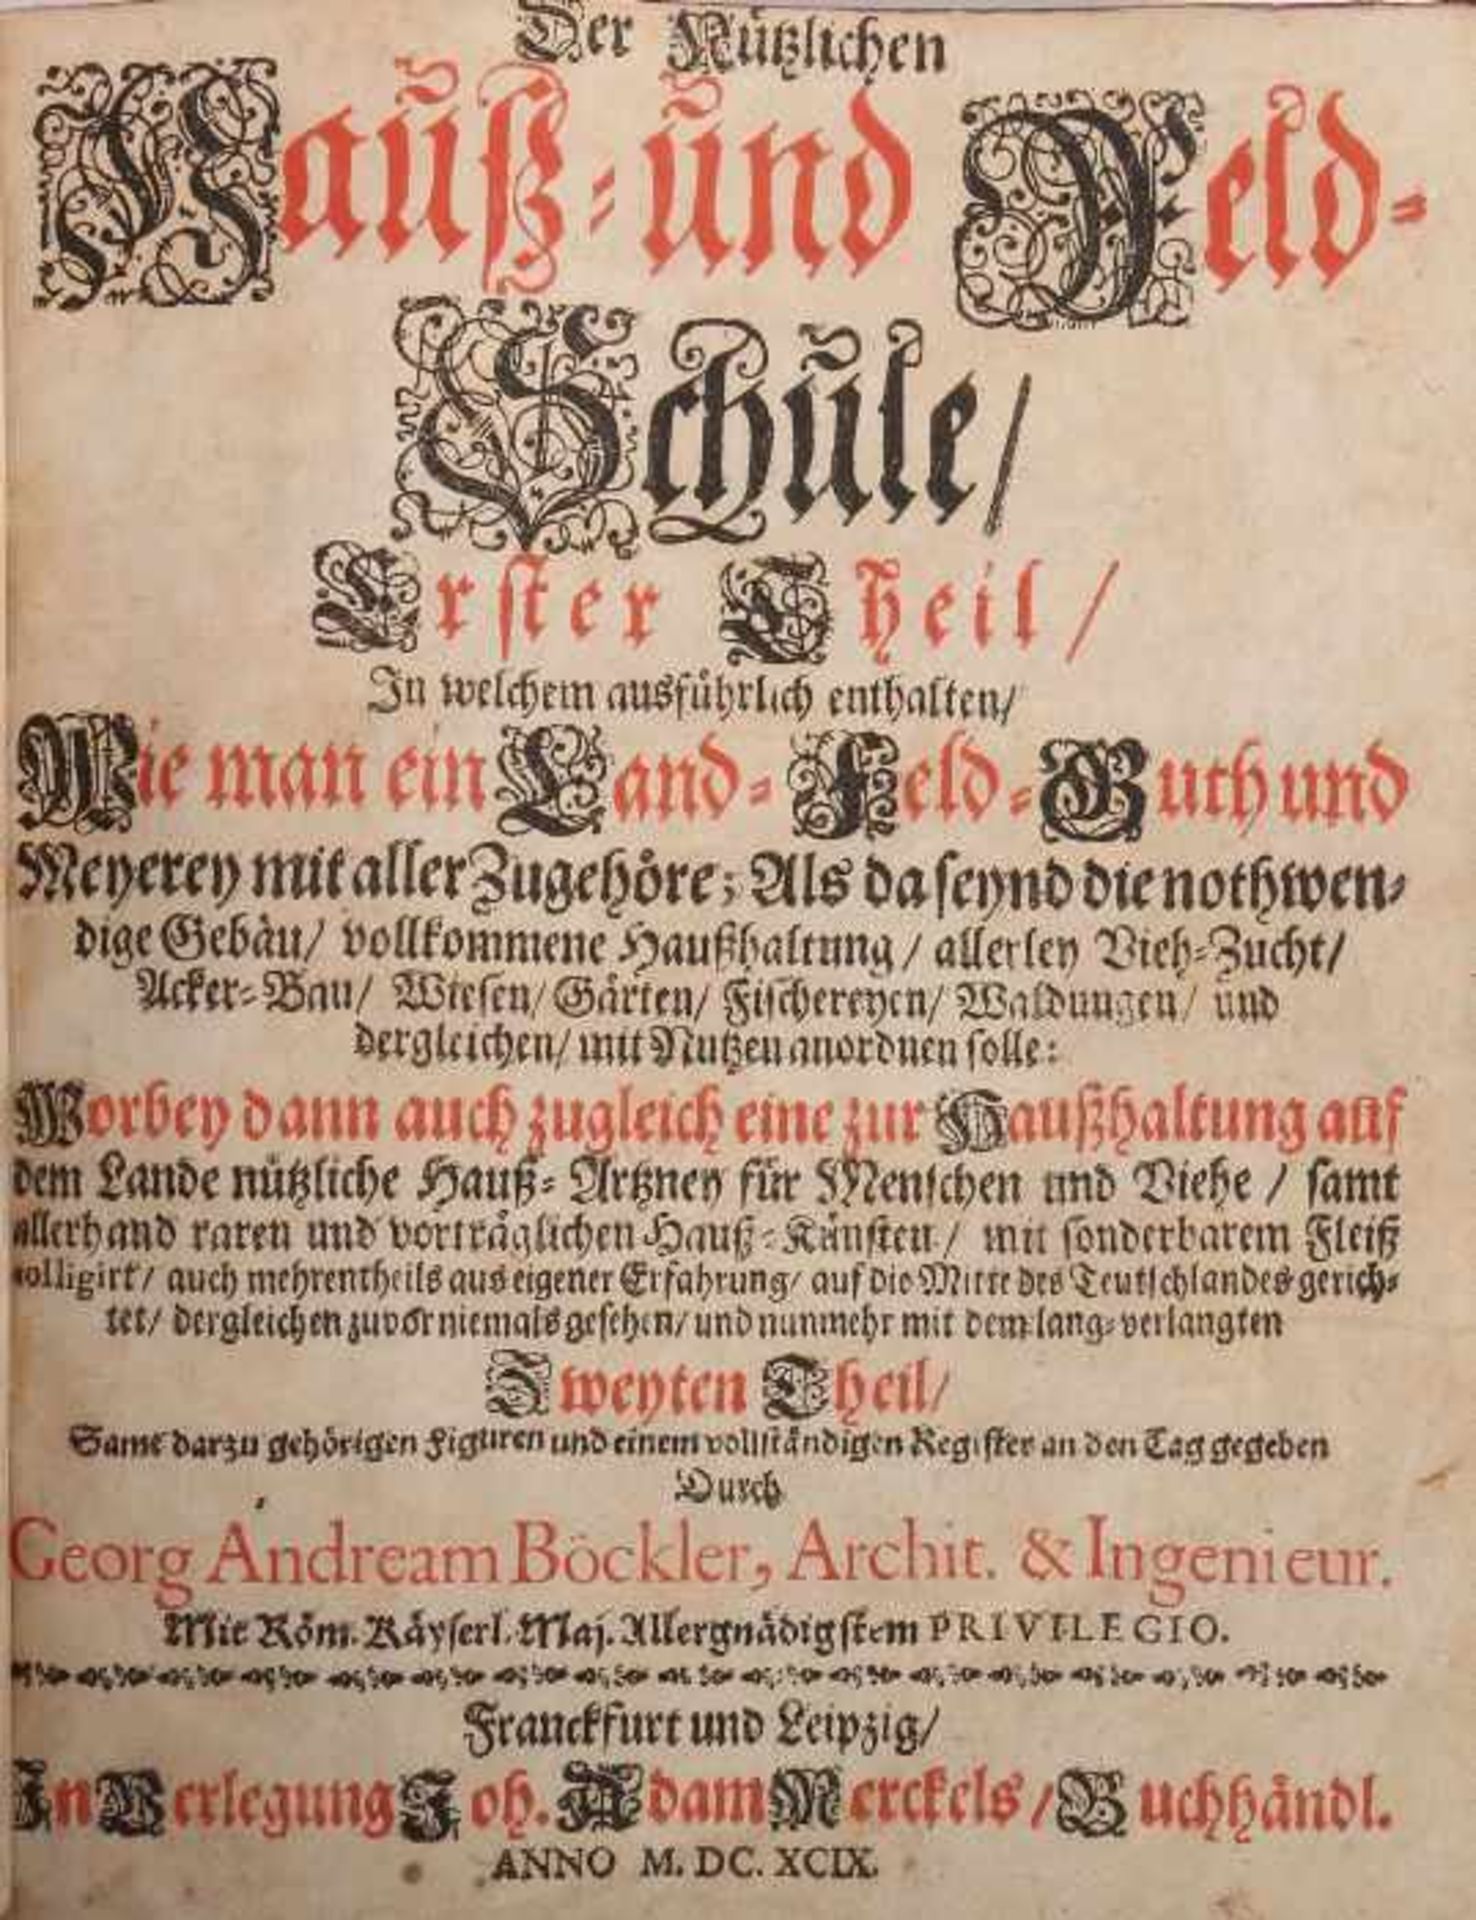 Der Nützlichen
Hauß- und Feld-
Schule/
Erster Theil/
In welchem ausführlich enthalten/
Wie man ein Land- Feld- Guth und
Meyerey mit aller Zugehöre; Als da seynd die nothwen-
dige Gebäu/ vollkommene Haußhaltung/ allerley Vieh-Zucht/
Acker-Bau/ Wiesen/ Gärten/ Fischereyen/ Waldungen/ und
dergleichen/ mit Nutzen anordnen solle:
Worbey dann auch zugleich eine zur Haußhaltung auf
dem Lande nützliche Hauß-Artzney für Menschen und Viehe/ samt
allerhand raren und vorträglichen Hauß-Künsten/ mit sonderbarem Fleiß
colligirt/ auch mehrentheils aus eigener Erfahrung/ auf die Mitte des Teutschlandes gerich-
tet/ dergleichen zuvor niemals gesehen/ und nunmehr mit dem lang-verlangten
Zweyten Theil/
Samt darzu gehörigen Figuren und einem vollständigen Register an den Tag gegeben
Durch
Georg Andream Böckler, Archit. & Ingenieur.
Mit Röm. Käyserl. Maj. Allergnädigstem PRIVILEGIO.
Franckfurt und Leipzig/
In Verlegung Joh. Adam Merckels/ Buchhändl.
ANNO M. DC. XCIX.